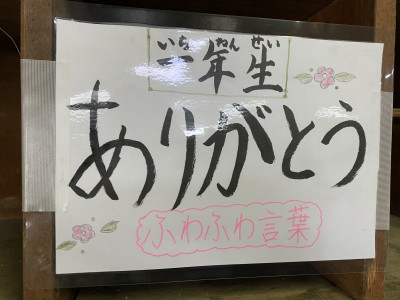 いちねんせい
一年生
ありがとう
ふわふわ言葉